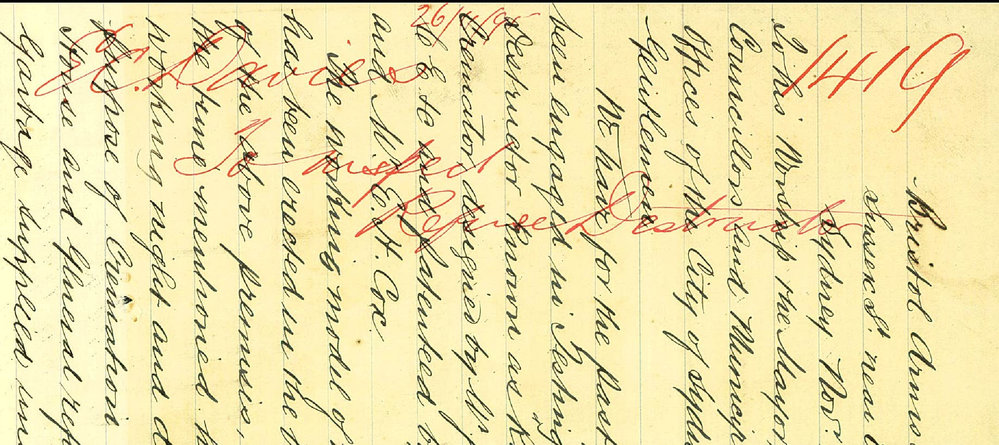 26/11/95
E. C. Davies
1419
To inspect
Refuse Destructor
Bristol Arms
Sussex St near
Sydney Nov.
To His Worship the Mayor
Councillors and Municip
Offices of the City of Sydn
Gentlemen
We have for the past
been engaged in testing
Destructor known as
Cremator designed by Mr
C E to and patented
and Mr C. H. Cox
The working model of
has been erected in the
of the above premises,
the time mentioned
working night and d
purpose of Cremation
and General ref
Garbage supplied